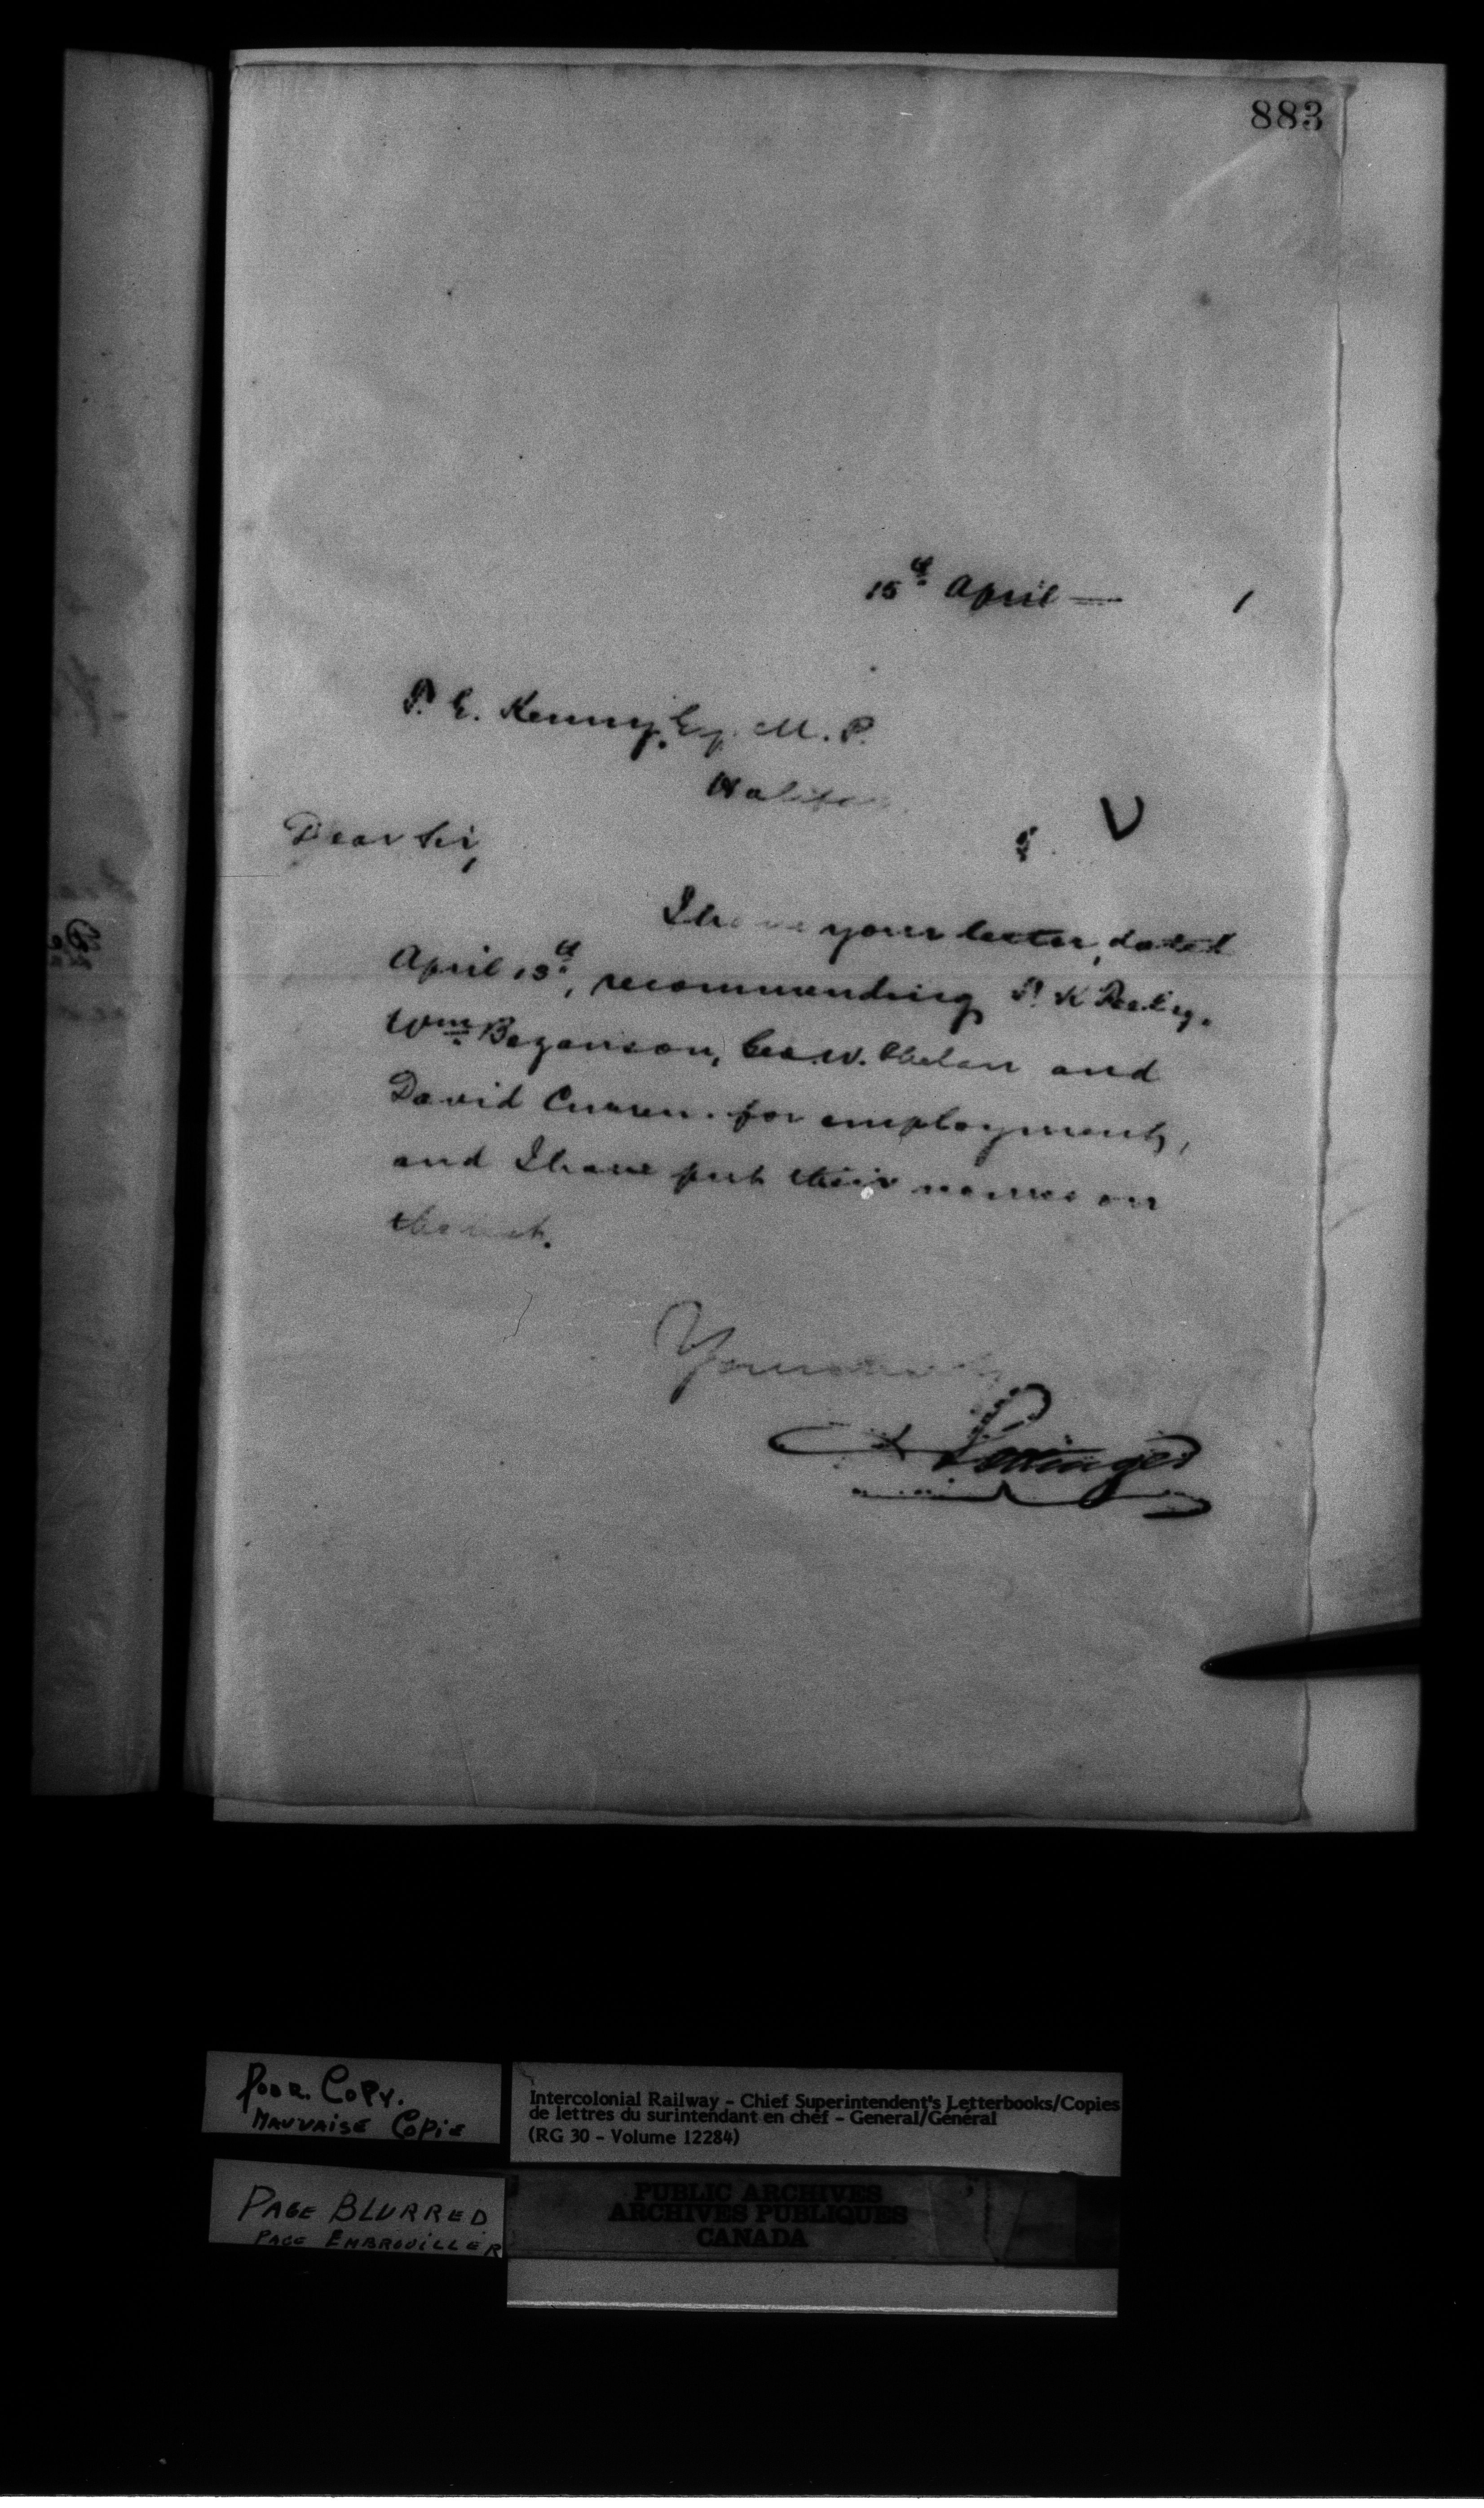 883
15th April — 1
T. E. Kenny, Esq. M. P.
Halifax
Dear Sir,
I have your letter, dated
April 13th, recommending K
Wm Bezanson, Geo. W. Phelan and
David Curren. for employment,
and I have put their names on
the list.
Yours truly
D Pottinger
POOR COPY.
MAUVAISE COPIE
PAGE BLURRED
PAGE EMBROUILLER
Intercolonial Railway - Chief Superintendent's Letterbooks/Copies
de lettres du surintendant en chef - General/Général
(RG 30 - Volume 12284)
PUBLIC ARCHIVES
ARCHIVES PUBLIQUES
CANADA